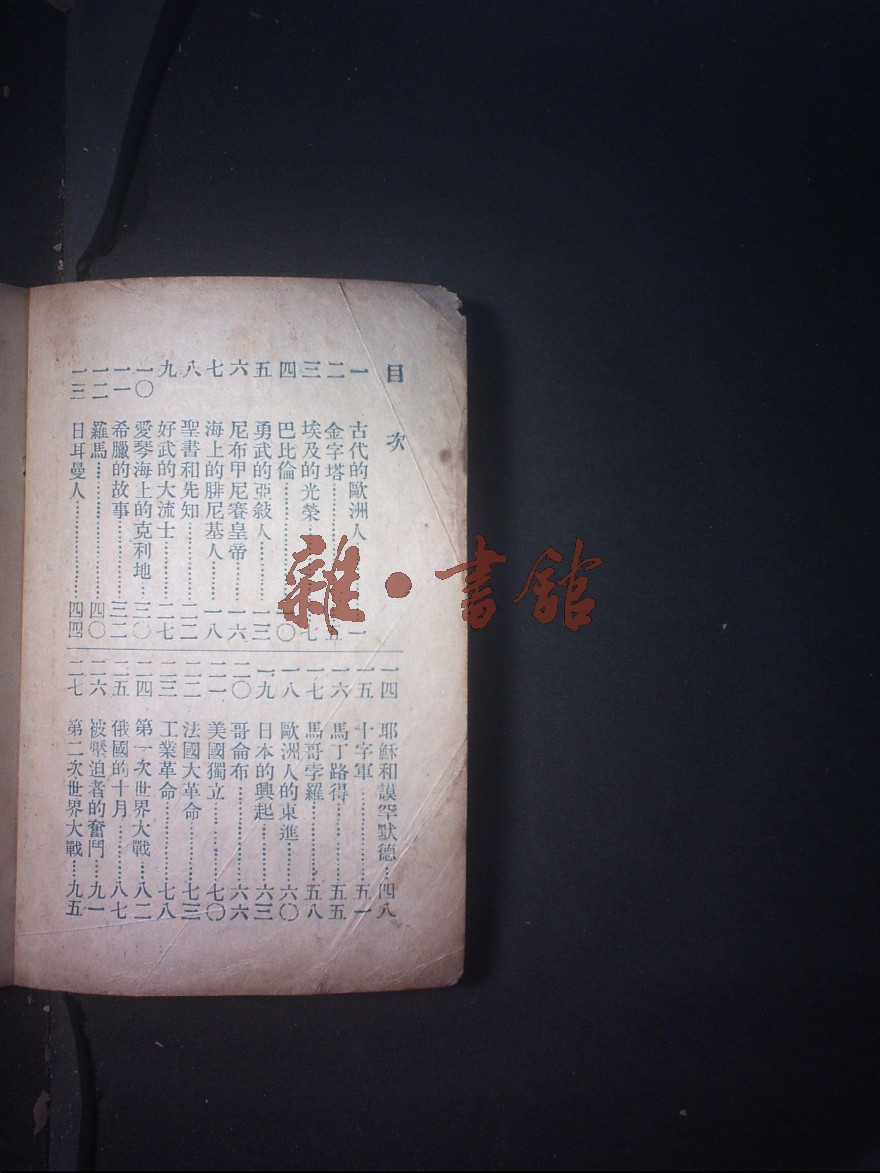 目次
一 古代的歐洲人……一
二 金字塔……五
三 埃及的光榮……七
四 巴比倫……一〇
五 勇武的亞敍人……一三
六 尼布甲尼賽皇帝……一六
七 海上的腓尼基人……一八
八 聖書和先知……二二
九 好武的大流士……二七
一〇 愛琴海上的克利地……三〇
一一 希臘的故事……三二
一二 羅馬……四〇
一三 日耳曼人……四四
一四 耶穌和謨罕默德……四八
一五 十字軍……五一
一六 馬丁路得……五五
一七 馬哥孛羅……五八
一八 歐洲人的東進……六〇
一九 日本的興起……六三
二〇 哥侖布……六六
二一 美國獨立……七〇
二二 法國大革命……七三
二三 工業革命……七八
二四 第一次世界大戰……八二
二五 俄國的十月……八七
二六 被壓迫者的奮鬥……九一
二七 第二次世界大戰……九五
雜·書館